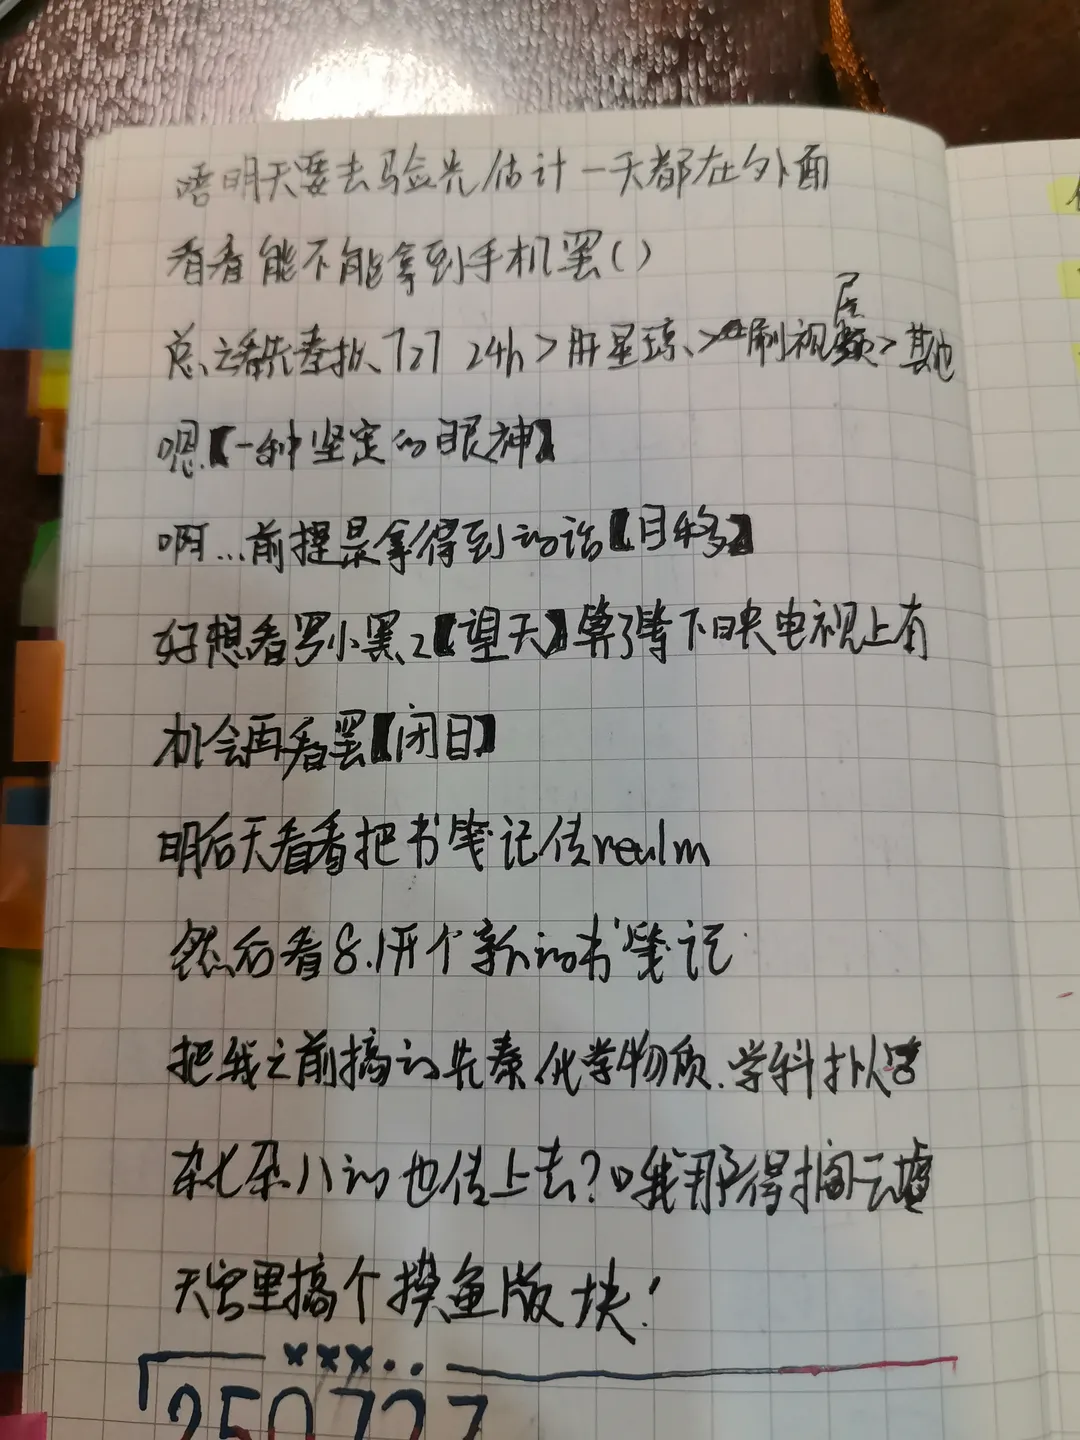 唔明天要去验光估计一天都在外面
看看能不能拿到手机罢()
总之看先秦拟人727 24h>肝星琼>刷视频>其他
嗯【一种坚定的眼神】
啊…前提是拿得到的话【目移】
好想看罗小黑2【望天】算了等下映电视上有
机会再看罢【闭目】
明后天看看把书笺记传realm
然后看8.1开个新的书笺记
把我之前搞的先秦化学物质.学科拟人
杂七杂八的也传上去?哦我那得搁云墟
天宫里搞个摸鱼版块!
250727